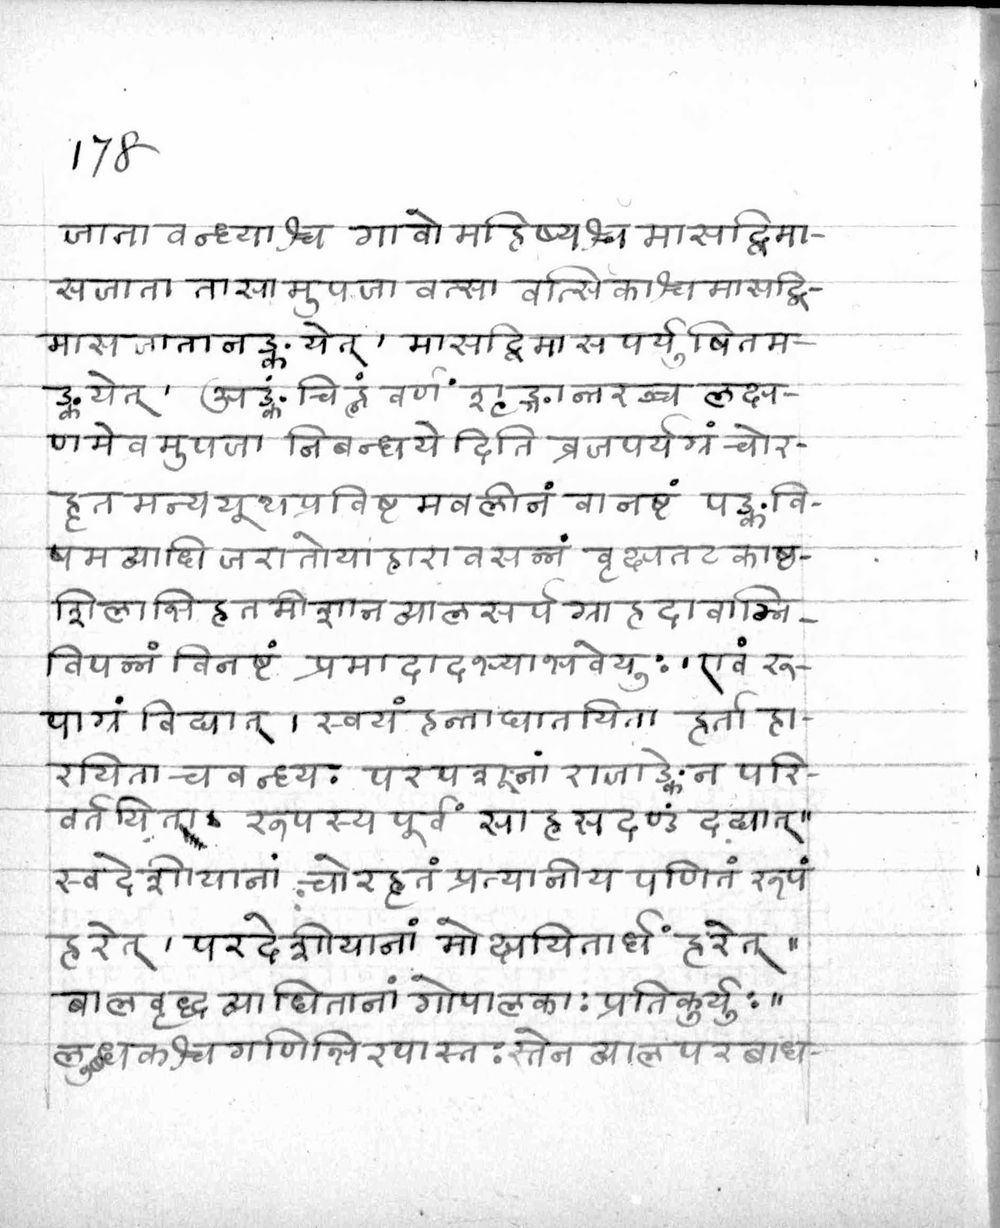 178
जाता वन्ध्याश्च गावो महिष्यश्च मासद्विमा-
सजाता तासामुपजा वत्सा वत्सिकाश्च मासद्वि-
मासजातानङ्कयेत् । मासद्विमासपर्युषितम-
ङ्कयेत् । अङ्कं चिह्नं वर्णं शृङ्गान्तरञ्च लक्ष-
णमेवमुपजा निबन्धयेदिति व्रजपर्यग्रं चोर-
हृतमन्ययूथप्रविष्टमवलीनं वा नष्टं पङ्कवि-
षमव्याधिजरातोयाहारावसन्नं वृक्षतटकाष्ठ-
शिलाभिहतमीशानव्यालसर्पग्राहदावाग्नि-
विपन्नं विनष्टं प्रमादादभ्याभवेयुः । एवं रू-
पाग्रं विद्यात् । स्वयं हन्ता घातयिता हर्ता हा-
रयिता च वन्ध्यः परपशूनां राजाङ्केन परि-
वर्तयिता रूपस्य पूर्वं साहसदण्डं दद्यात् ॥
स्वदेशीयानां चोरहृतं प्रत्यानीय पणितं रूपं
हरेत् । परदेशीयानां मोक्षयितार्धं हरेत् ॥
बालवृद्धव्याधितानां गोपालकाः प्रतिकुर्युः ॥
लुब्धकश्वगणिभिरपास्तः स्तेनव्यालपरबाध-